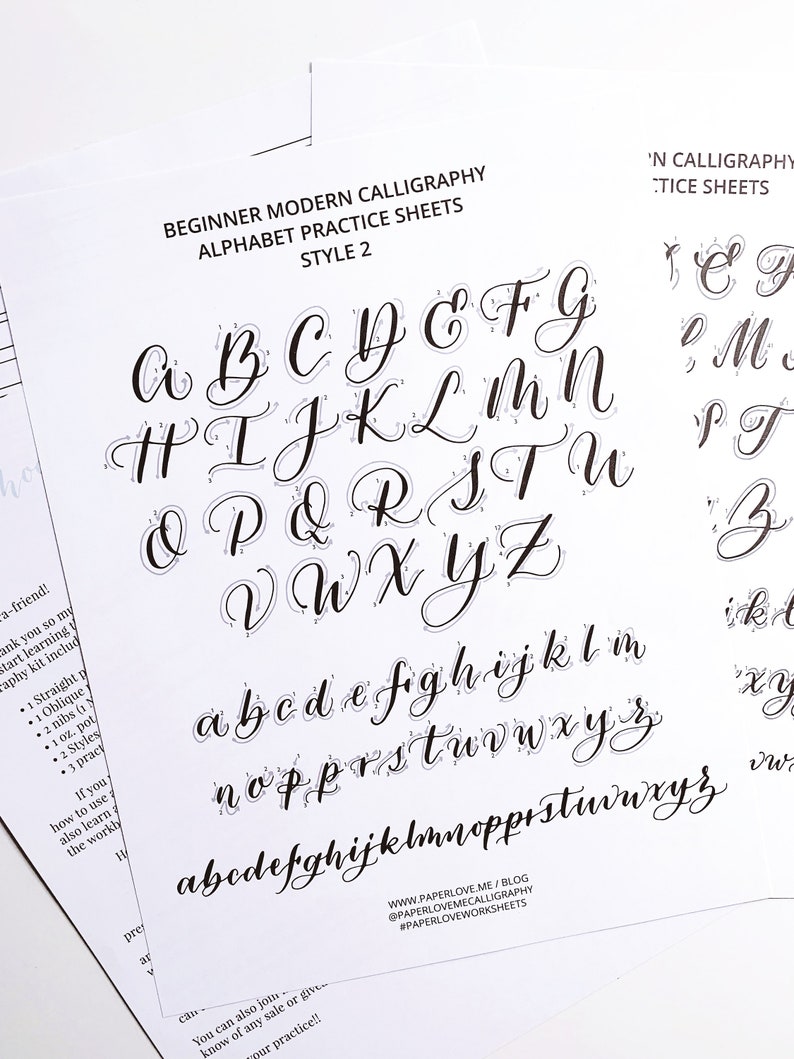 BEGINNER MODERN CALLIGRAPHY
ALPHABET PRACTICE SHEETS
STYLE 2
A B C D E F G
H I J K L M N
O P Q R S T U
V W X Y Z
a b c d e f g h i j k l m
n o p p r s t u v w x y z
abcdefghijklmnopprstuvwxyz
WWW.PAPERLOVE.ME / BLOG
@PAPERLOVEMECALLIGRAPHY
#PAPERLOVEWORKSHEETS
CALLIGRAPHY
SHEETS
E F
M
T
Z
k
x y
vw
a-friend!
you so
start learning
kit
• 1 Straight
• 1 Oblique
• 2 nibs (1
• 1 oz.
• 2 Styles
• 3
If you
how to use
also learn
the
You can also join
know of any sale or
your practice!!